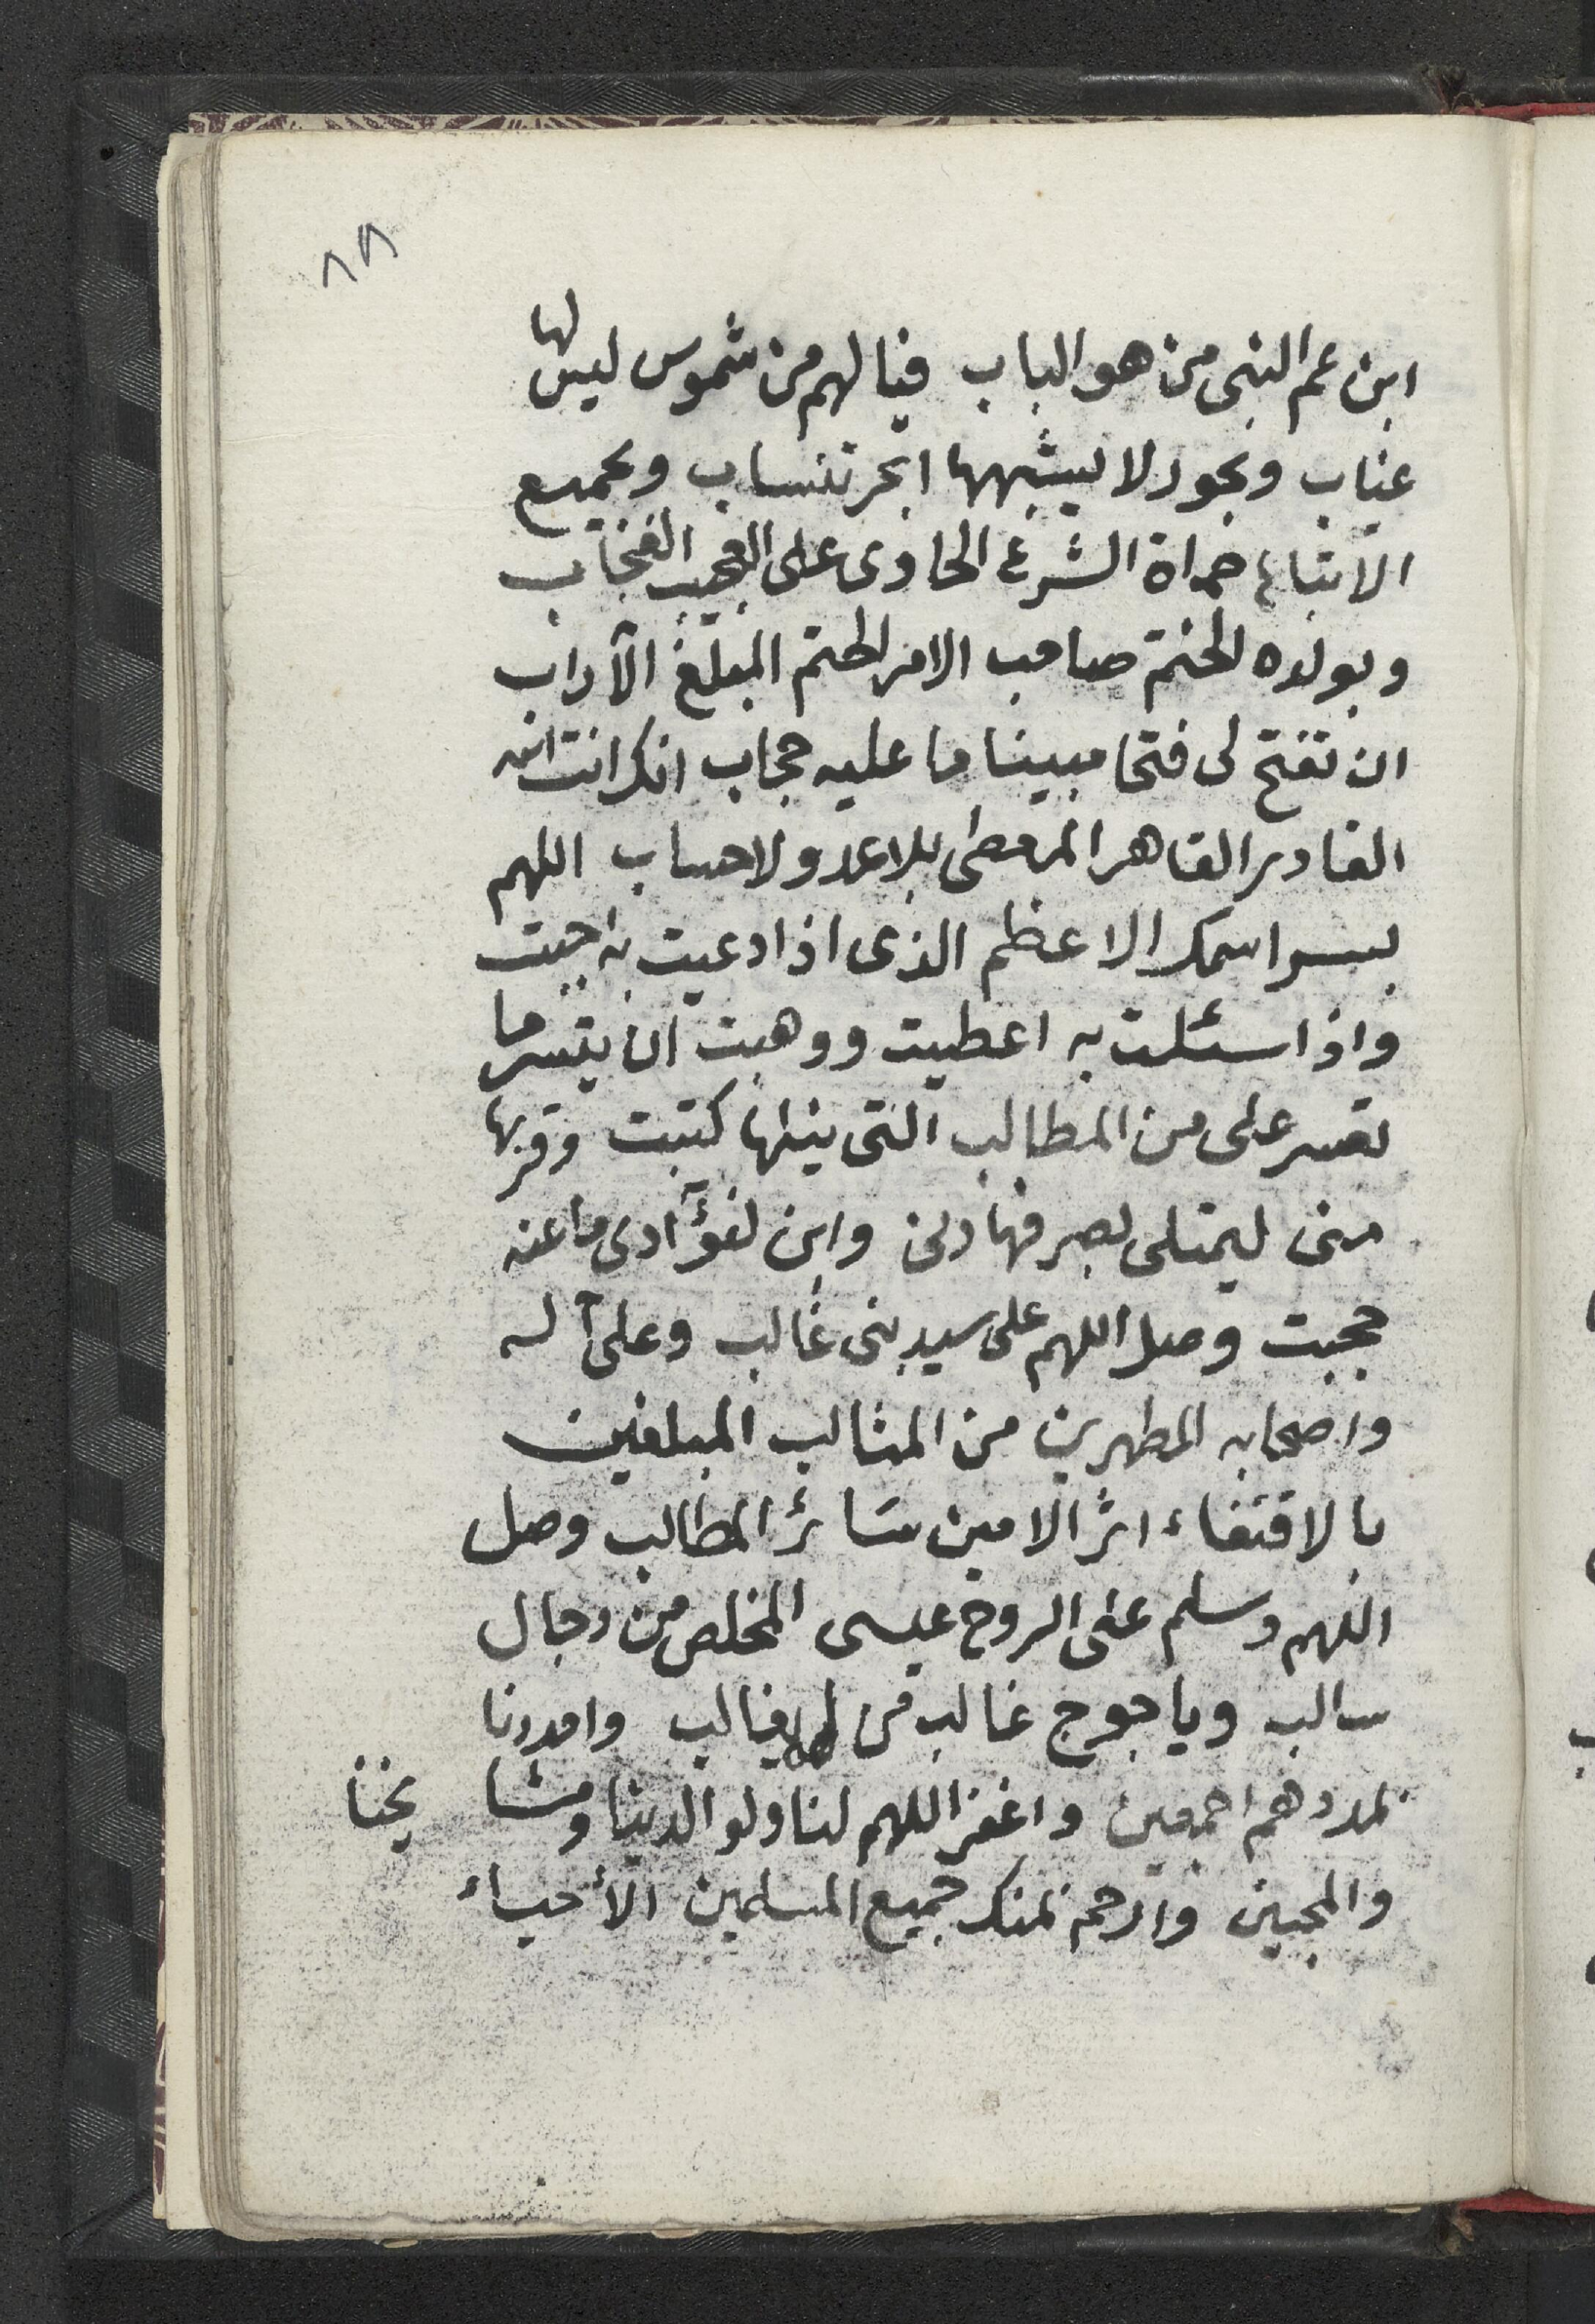 ٨٨
ابن عم النبى من هو الباب فيا لهم من شموس ليس لها
غياب وبحور لا يشبهها ابحر تنساب وبجميع
الاتباع حماة الشرع الحاوى على العجب
وبولده الختم صاحب الامر الحتم المبلغ الآراب
ان تفتح لى فتحا مبينا ما عليه حجاب انك انت الله
القادر القاهر المعطى بلا عد ولا حساب اللهم
بسر اسمك الاعظم الذى اذا دعيت به اجبت
واذا سئلت به اعطيت ووهبت ان تيسر ما
تعسر على من المطالب التى نيلها كتبت وقربها
منى ليمتلى بصرفها دنى وابن لفؤآدى ما عنه
حجبت وصل اللهم على سيد بنى غالب وعلى آله
واصحابه المطهرين من المثالب المبلغين
بالاقتفاء اثر الامين سائر المطالب وصل
اللهم وسلم على الروح عيسى المخلص من دجال
سالب وياجوج غالب من يغالب وامددنا
بمددهم اجمعين واغفر اللهم لنا ولوالدينا ومشا يخنا
والمحبين وارحم بمنك جميع المسلمين الأحياء